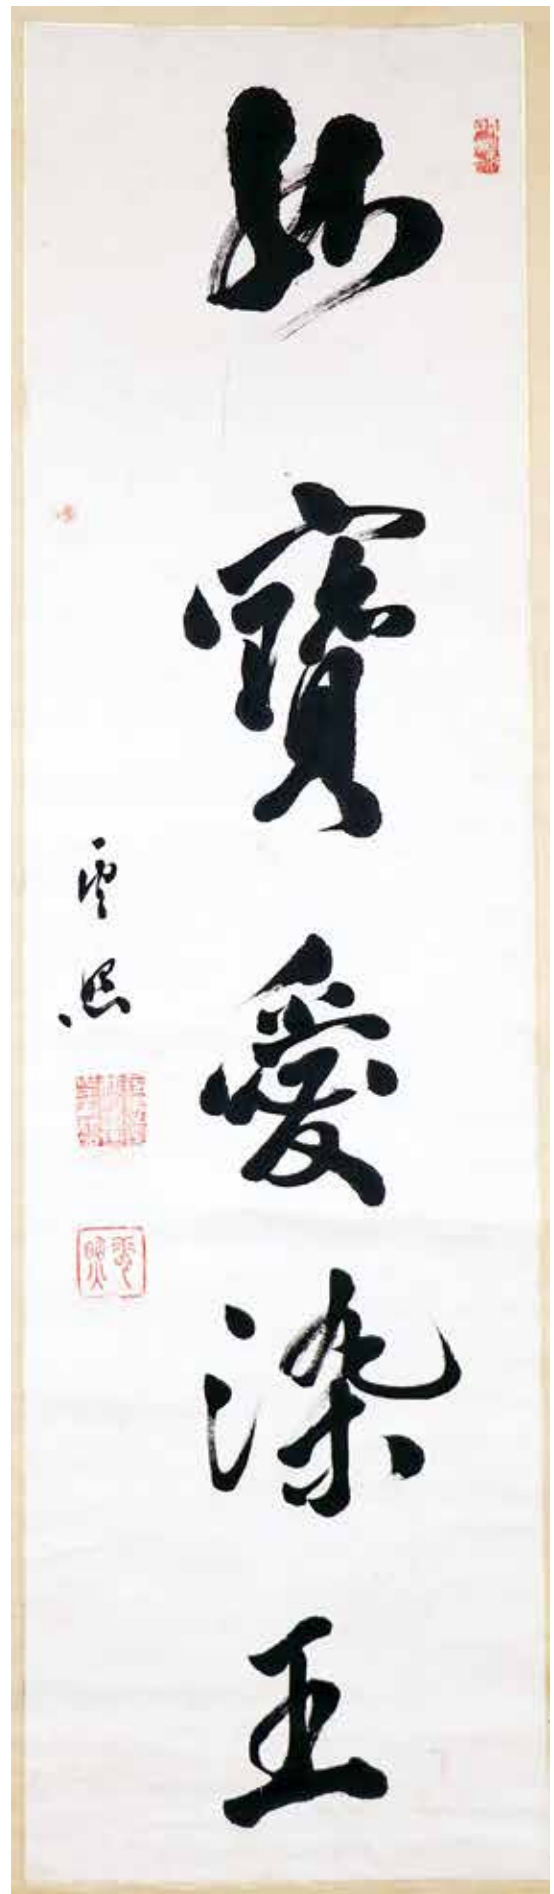 妙寶愛染王
雲照